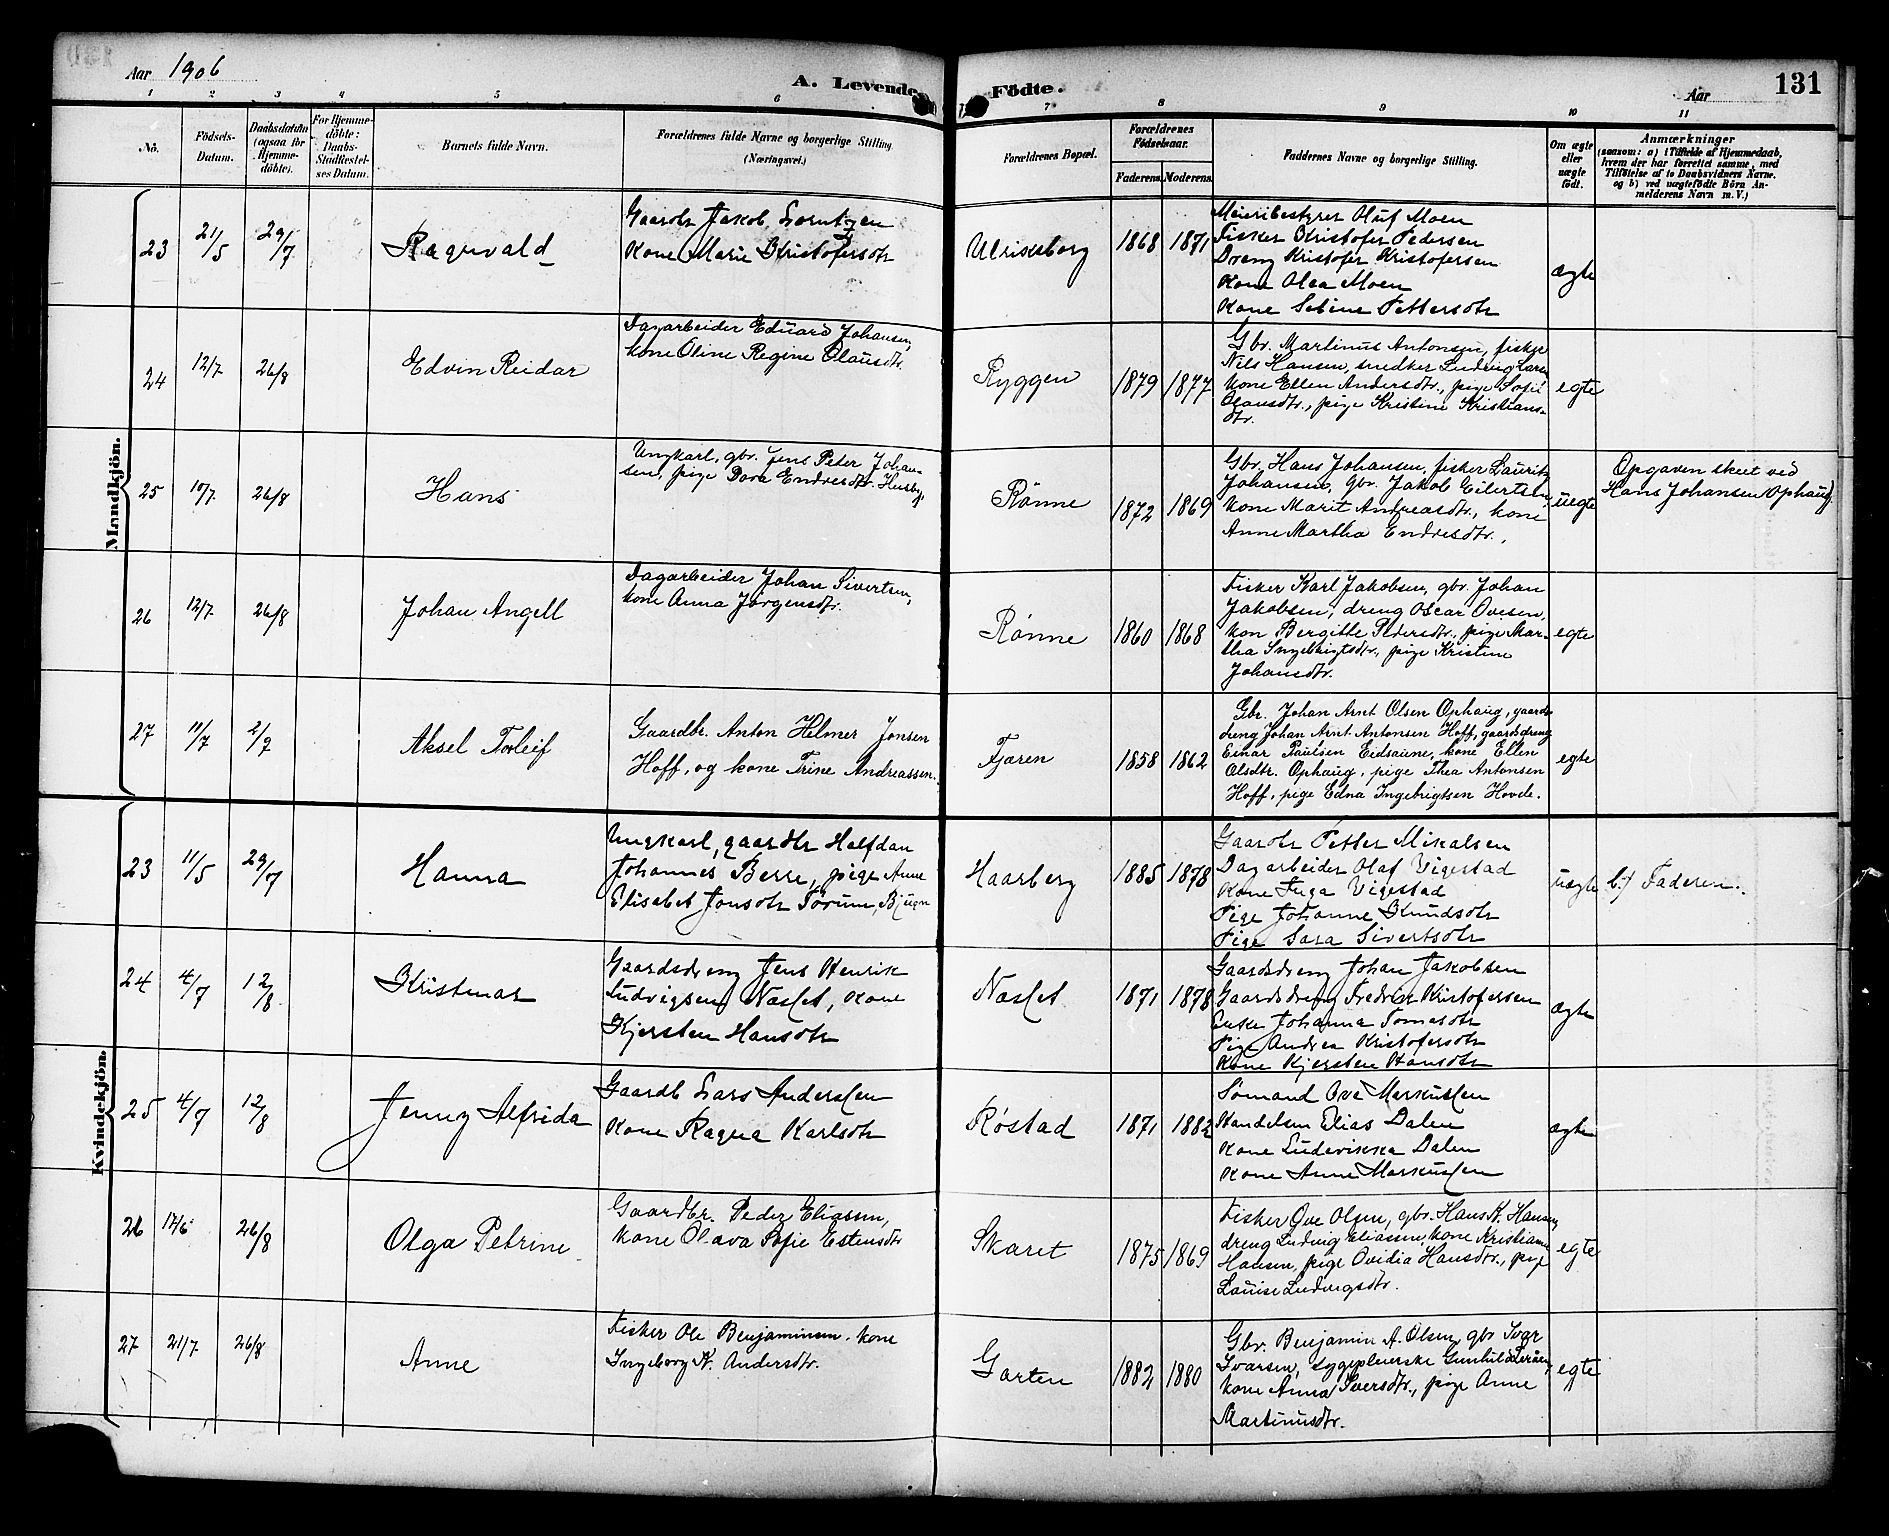 Aar 1906
A. Levende Fødte.
Aar
131
1 2 3 4 5 6 7 8 9 10 11
No.
Fødsels-
Datum.
Daabsdatum
(ogsaa for
Hjemme-
døbte).
For Hjemme-
døbte:
Daabs-
Stadfæstel-
ses Datum.
Barnets fulde Navn.
Forældrenes fulde Navne og borgerlige Stilling.
(Næringsvei.)
Forældrenes Bopæl.
Forældrenes
Fødselsaar.
Faderens. Moderens.
Faddernes Navne og borgerlige Stilling.
Om ægte
eller
uægte
født.
Anmærkninger
(saasom: a) i Tilfælde af Hjemmedaab,
hvem der har forrettet samme, med
Tilføielse af to Daabsvidners Navne.
og b) ved uægtefødte Børn An-
melderens Navn m. V.)
Mandkjøn.
23 21/5 29/7
Ragnvald
Gaardbr Jakob Lorntzen
Kone Marie Kristofersdtr
Ulriksborg
1868 1871
Meieribestyrer Oluf Moen
Fisker Kristofer Pedersen
Dreng Kristofer Kristofersen
Kone Olea Moen
Kone Sebine Pettersdtr
ægte
24 12/7 26/8
Edvin Reidar
Dagarbeider Eduard Johansen,
kone Oline Regine Olausdtr.
Ryggen
1879 1877
Gbr. Martinus Antonsen, fisker
Nils Hansen, snedker Ludvig
kone Ellen Andersdtr., pige Sofie
Olausdtr., pige Kristine Kristians-
dtr.
egte
25 10/7 26/8
Hans
Ungkarl, gbr. Jens Peter Johan-
sen, pige Dora Endresdtr. Husby,
Rønne
1872 1869
Gbr. Hans Johansen, fisker Lauritz
Johansen, gbr. Jakob Eilertsen,
kone Marit Andreasdtr., kone
Anne Martha Endresdtr.,
uegte
Opgaven skeet ved
Hans Johansen Ophaug.
26 12/7 26/8
Johan Angell
Dagarbeider Johan Sivertsen,
kone Anna Jørgensdtr.
Rønne
1860 1868
Fisker Karl Jakobsen, gbr. Johan
Jakobsen, dreng Oscar Ovesen,
kon Bergitte Pedersdtr., pige Mar-
tha Ingebrigtsdtr., pige Kristine
Johansdtr.
egte
27 11/7 2/9
Aksel Torleif
Gaardbr. Anton Helmer Jonsen
Hoff, og kone Trine Andreassen.
Fjæren
1858 1862
Gbr. Johan Arnt Olsen Ophaug, gaards-
dreng Johan Arnt Antonsen Hoff, gaardsdreng
Einar Paulsen Eidsaune, kone Ellen
Olsdtr. Ophaug, pige Thea Antonsen
Hoff, pige Edna Ingebrigtsen Hovde.
egte
Kvindekjøn.
23 11/5 29/7
Hanna
Ungkarl, gaardbr Halfdan
Johannes Berre, pige Anne
Elisabet Jonsdtr Tørum, Bjugn
Haarberg
1885 1878
Gaardbr Petter Mikalsen
Dagarbeider Olaf Vigestad
Kone Inga Vigestad
Pige Johanne Knudsdtr
Pige Sara Sivertsdtr
uægte
b.) Faderen.
24 4/7 12/8
Kristmar
Gaardsdreng Jens Henrik
Ludvigsen Næslet, kone
Kjersten Hansdtr
Næslet
1871 1878
Gaardsdreng Johan Jakobsen
Gaardsdreng Fredrik Kristofersen
Enke Johanna Tomasdtr
Pige Andrea Kristofersdtr
Kone Kjersten Hansdtr
ægte
25 4/7 12/8
Jenny Alfrida
Gaardb Lars Anderssen
Kone Ragna Karlsdtr
Røstad
1871 1882
Sømand Ove Markussen
Handelsm Elias Dalen
Kone Ludevikka Dalen
Kone Anne Markussen
ægte
26 17/6 26/8
Olga Petrine
Gaardbr. Peder Eliassen,
kone Olava Sofie Estensdtr
Skaret
1875 1869
Fisker Ove Olsen, gbr. Hans K. Hansen,
dreng Ludvig Eliassen, kone Kristianne
Hansen, pige Ovidia Hansdtr., pige
Lauise Ludvigsdtr.
egte
27 21/7 26/8
Anne
Fisker Ole Benjaminsen, kone
Ingeborg K. Andersdtr.
Garten
1882 1880
Gbr. Benjamin A. Olsen, gbr Ivar
Ivarsen, sygepleierske Gunhild
kone Anna Iversdtr., pige Anne
Martinusdtr.
egte